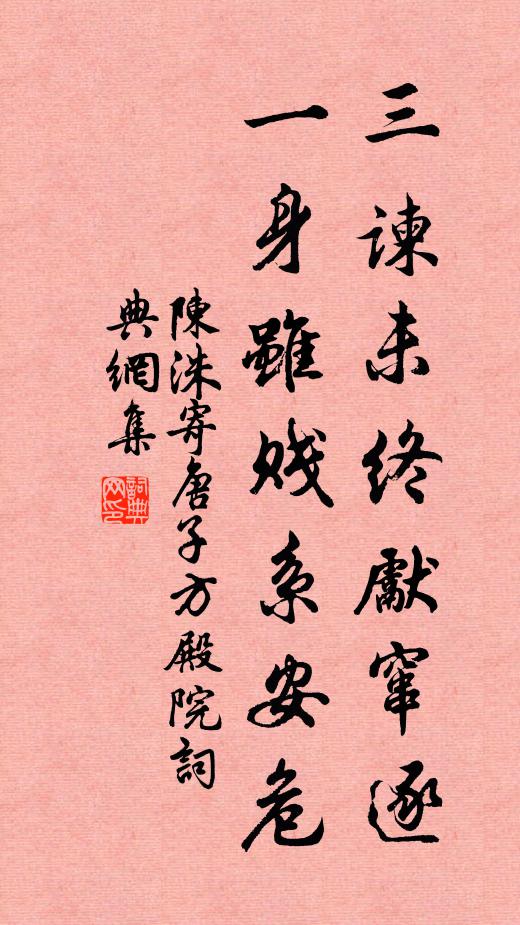 三諫未終獻竄逐
一身雖賤系安危
陳洙寄唐子方殿院詞
典網集
詞典网印